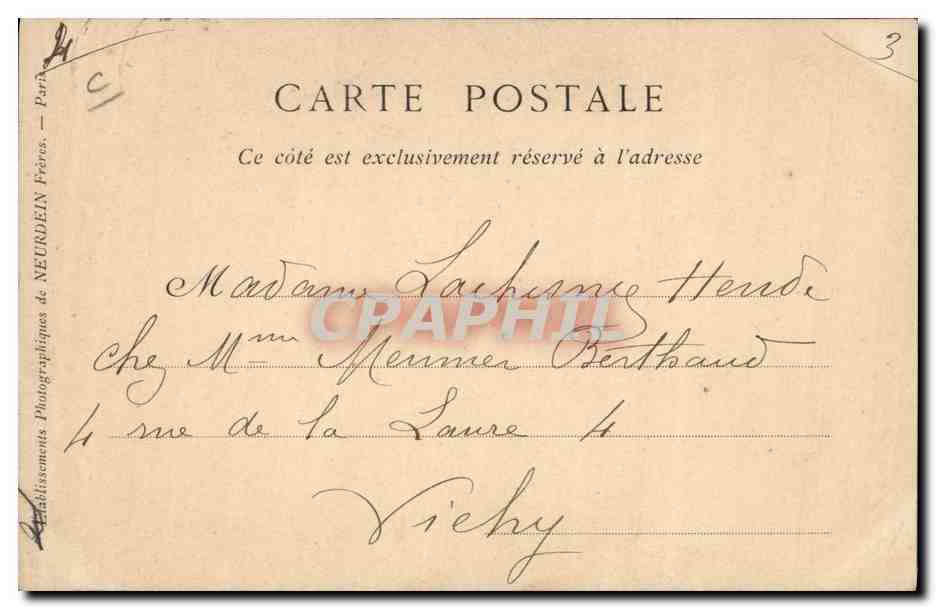 4
3
C
CARTE POSTALE
Ce côté est exclusivement réservé à l'adresse
Madame Hende
chez Mme Meunier Berthaud
4 rue de la Laure 4
Vichy
CRAPHIL
Etablissements Photographiques de NEURDEIN Frères. — Paris